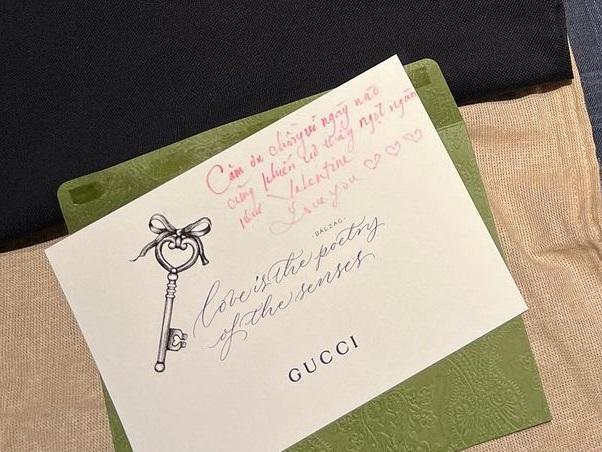 Cảm ơn chồng vì ngày nào
cũng khiến vợ thấy ngọt ngào
như Valentine
Love you ♡♡♡
-BALZAC-
love is the poetry
of the senses
GUCCI